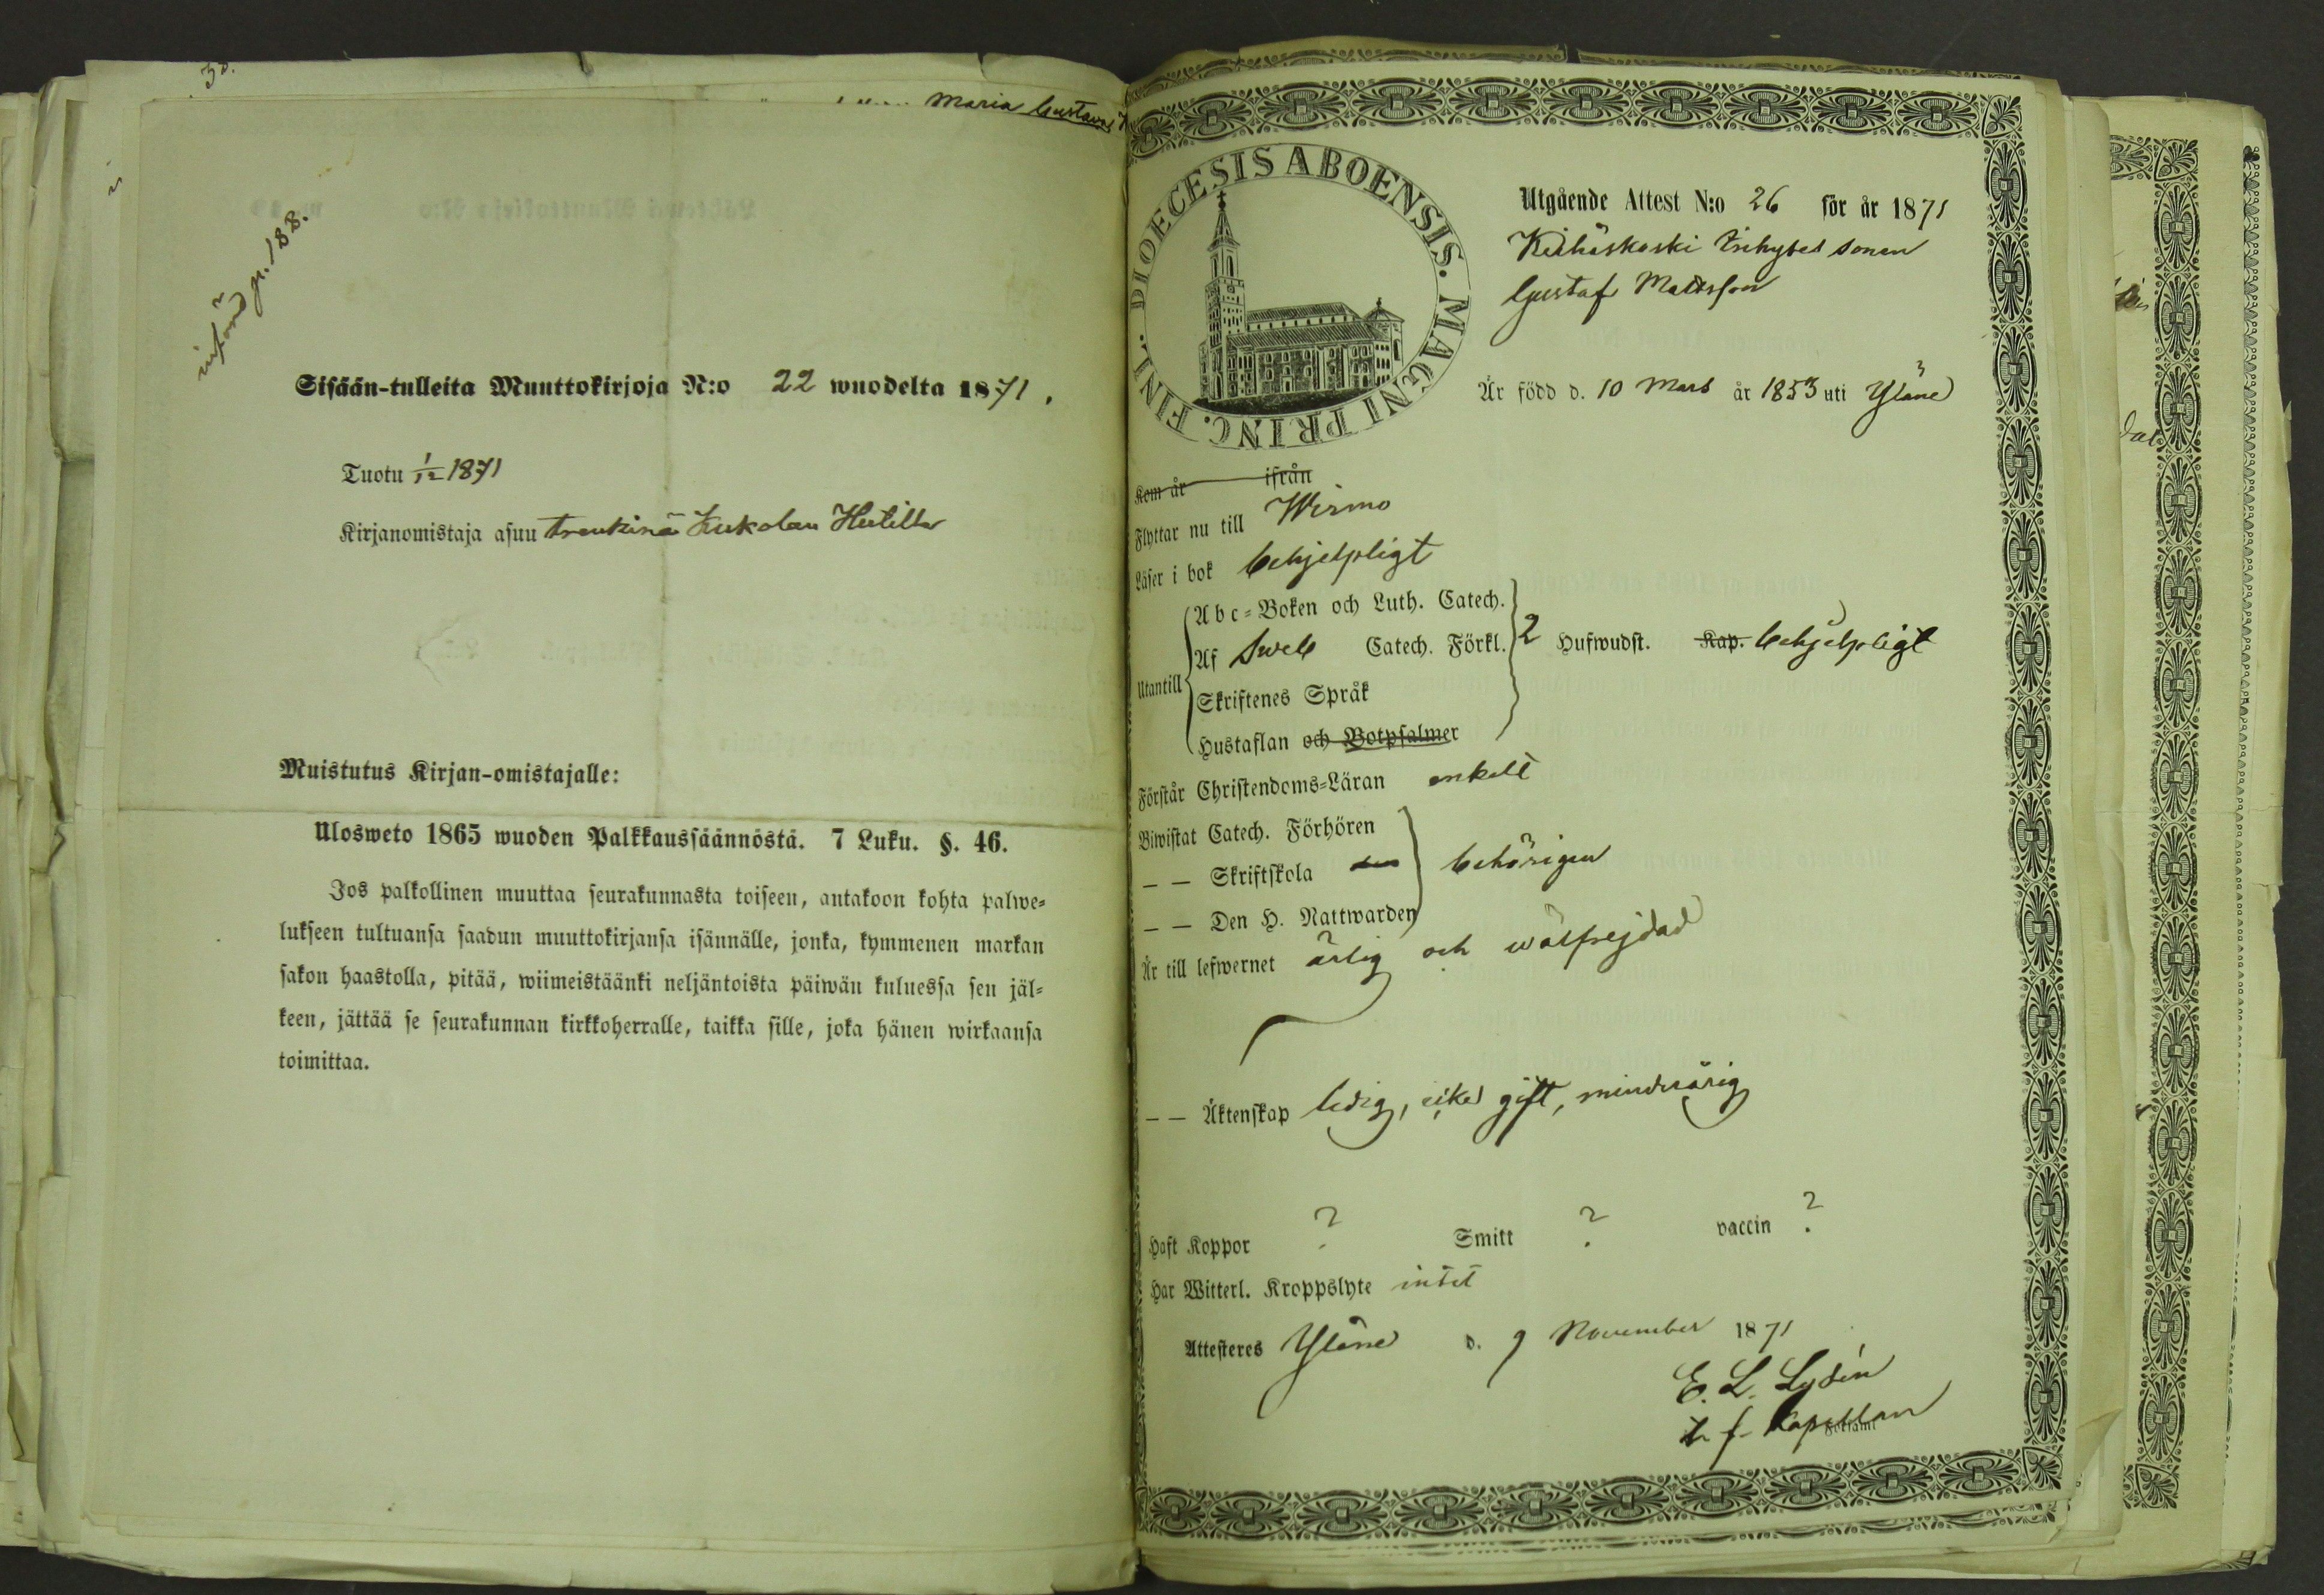 Maria Gustava
införd p. 188.
Sisään-tulleita Muuttokirjoja N:o 22 wuodelta 1871.
Tuotu 1/12 1871
Kirjanomistaja asuu trenkinä
Muistutus Kirjan-omistajalle:
Ulosweto 1865 wuoden Palkkaussäännöstä. 7 Luku. §. 46.
Jos palkollinen muuttaa seurakunnasta toiseen, antakoon kohta palwe-
lukseen tultuansa saadun muuttokirjansa isännälle, jonka, kymmenen markan
sakon haastolla, pitää, wiimeistäänki neljäntoista päiwän kuluessa sen jäl-
keen, jättää se seurakunnan kirkkoherralle, taikka sille, joka hänen wirkaansa
toimittaa.
FINL. DIOECESIS ABOENSIS. MAGNI PRINC.
Utgående Attest N:o 26 för år 1871
sonen
Gustaf Mattsson
Är född d. 10 Mars år 1853 uti Yläne
Kom år ifrån
Flyttar nu till Wirmo
Läser i bok behjelpligt
Utantill
Abc-Boken och Luth. Catech.
Af Sweb Catech. Förkl. 2 Hufwudst. Kap. behjelpligt
Skriftenes Språk
Hustaflan och Botpsalmer
Förstår Christendoms-Läran enkelt
Biwistat Catech. Förhören
— — Skriftskola behörigen
— — Den H. Nattwarden
Är till lefwernet ärlig och wälfrejdad
— — Äktenskap ledig, icke gift, minderårig
Haft Koppor ? Smitt ? vaccin ?
Har Witterl. Kroppslyte intet
Attesteres Yläne d. 9 November 1871
E. L. Lydén
t. f. Kapellan